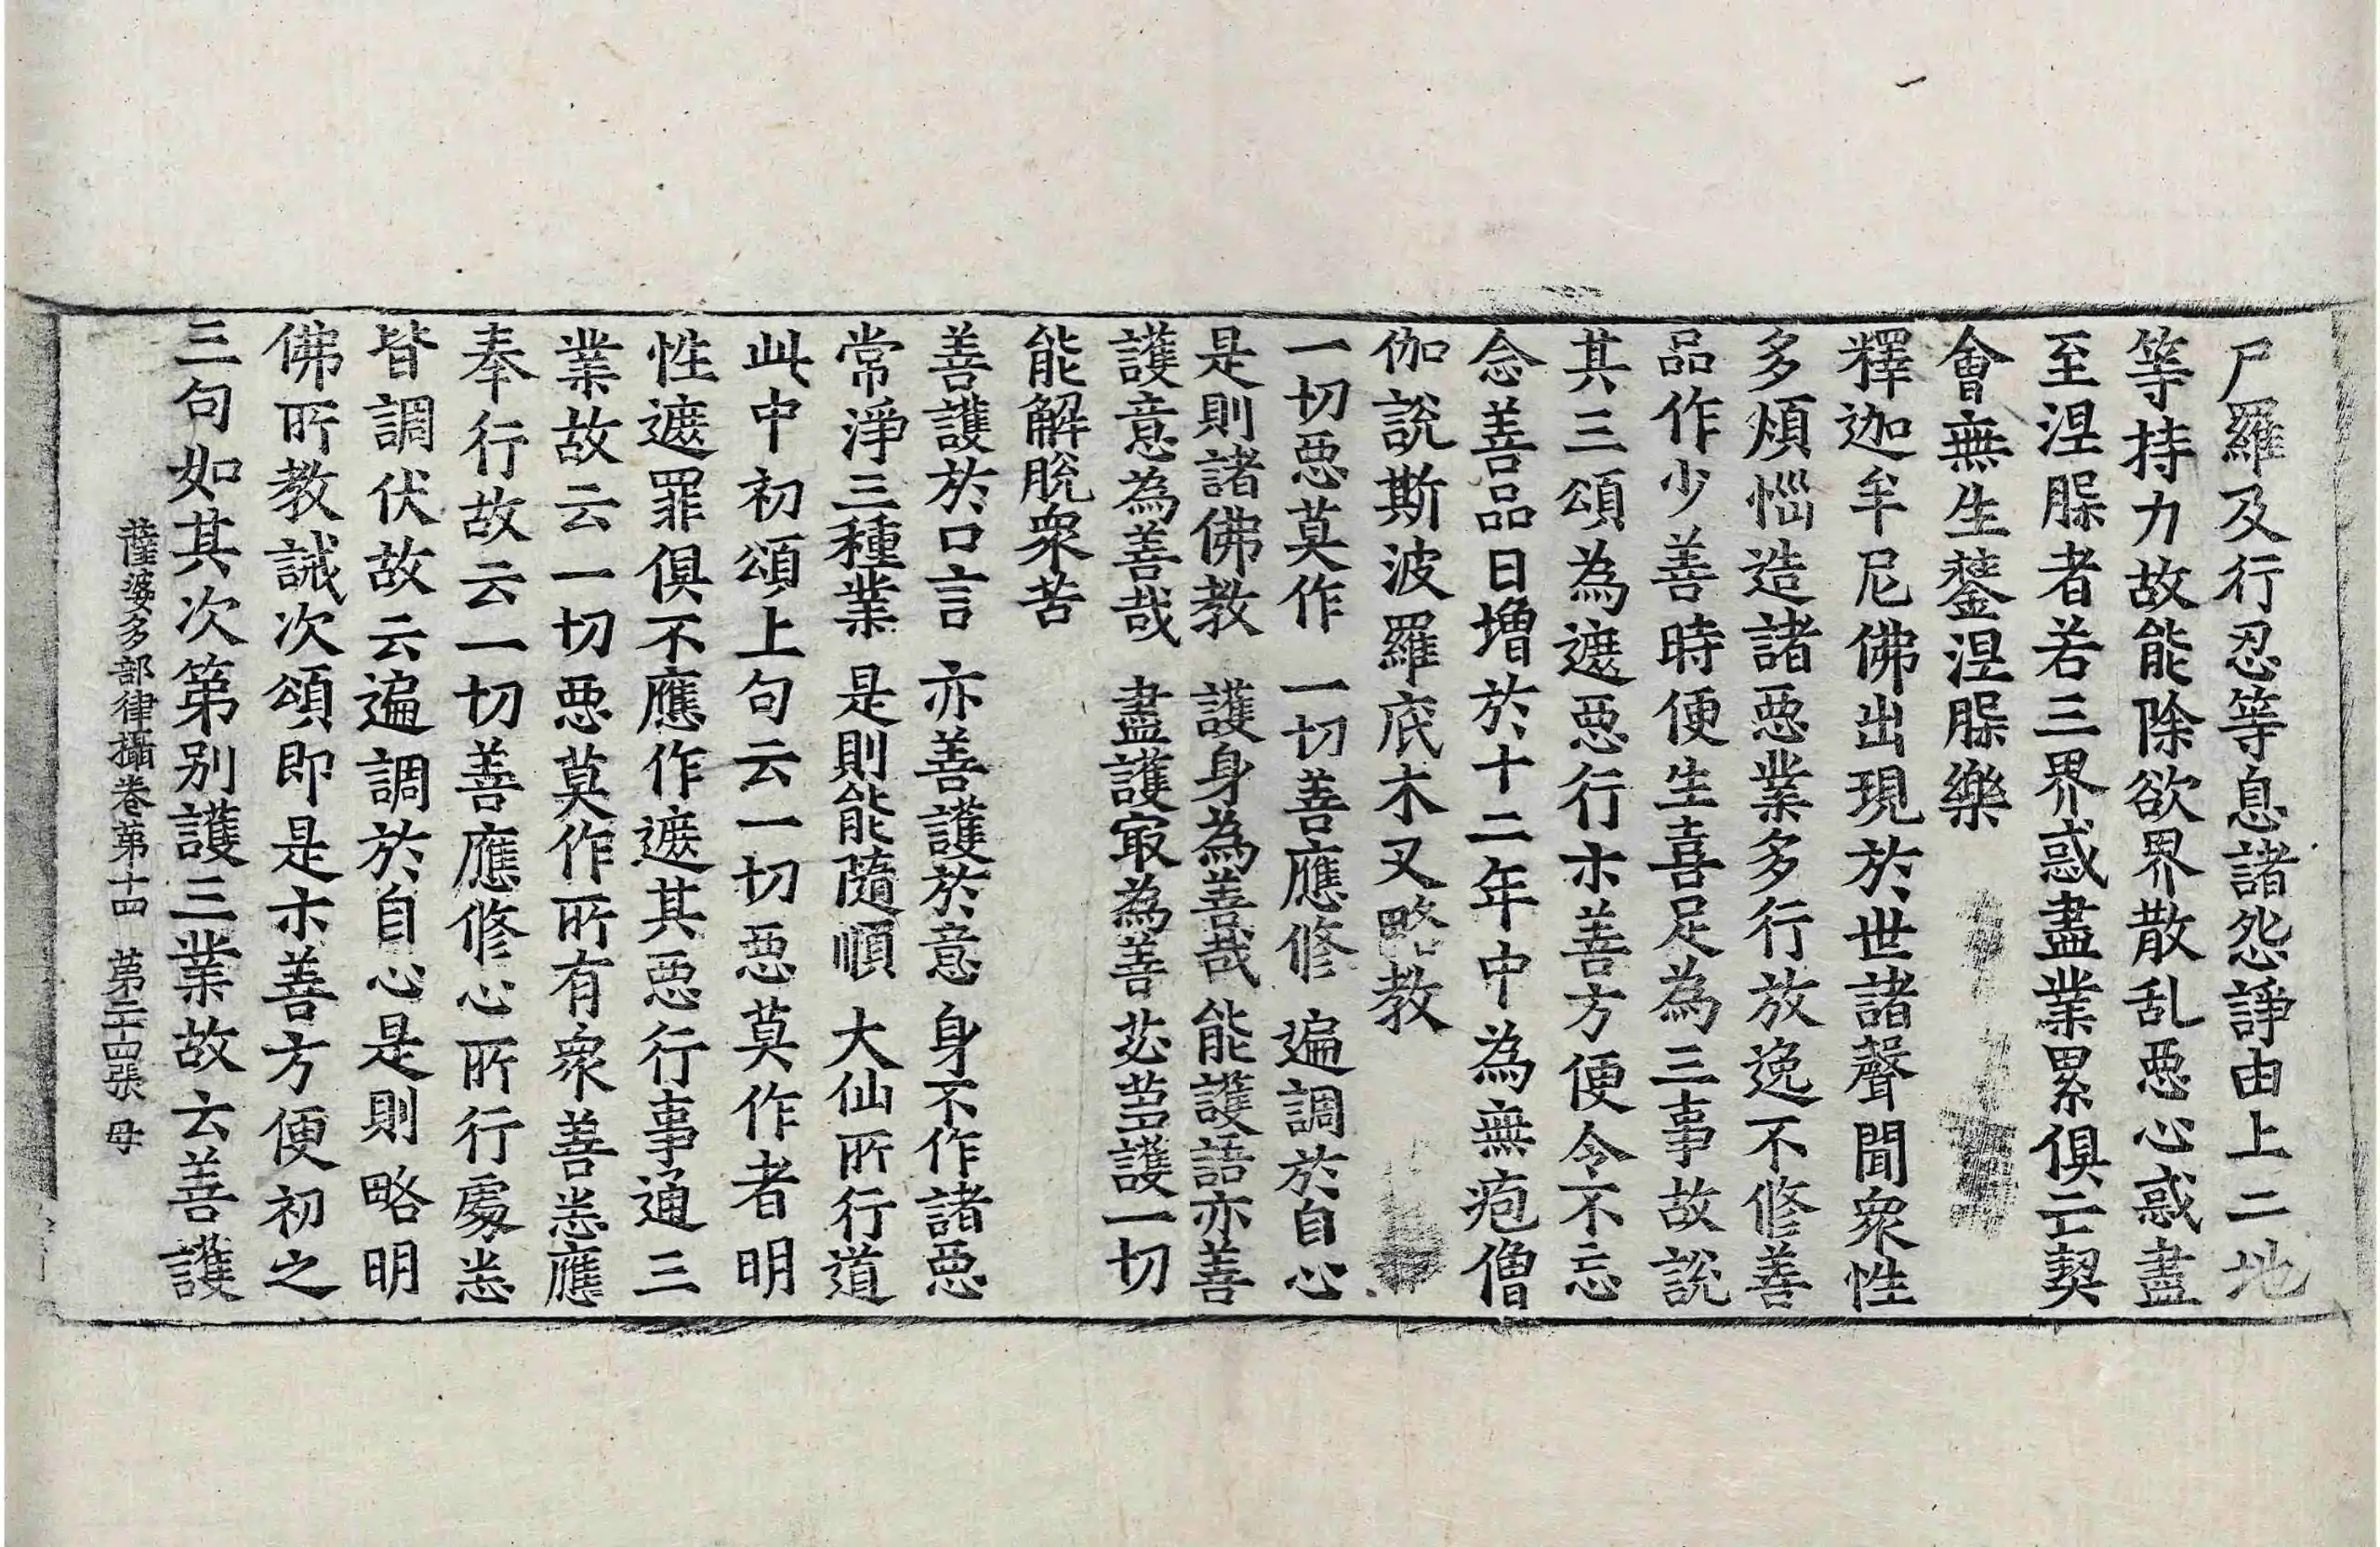 尸羅及行忍等息諸怨諍由上二地
等持力故能除欲界散乱惡心惑盡
至涅槃者若三界惑盡業累俱亡契
會無生鏊涅槃樂
釋迦牟尼佛出現於世諸聲聞衆性
多煩惱造諸惡業多行放逸不修善
品作少善時便生喜足為三事故說
其三頌為遮惡行示善方便令不忘
念善品日增於十二年中為無疱僧
伽說斯波羅底木叉略教
一切惡莫作 一切善應修 遍調於自心
是則諸佛教 護身為善哉 能護語亦善
護意為善哉 盡護冣為善 苾蒭護一切
能解脫衆苦
善護於口言 亦善護於意 身不作諸惡
常淨三種業 是則能隨順 大仙所行道
此中初頌上句云一切惡莫作者明
性遮罪俱不應作遮其惡行事通三
業故云一切惡莫作所有衆善恙應
奉行故云一切善應修心所行處恙
皆調伏故云遍調於自心是則略明
佛所教誡次頌即是示善方便初之
三句如其次第別護三業故云善護
薩婆多部律攝卷第十四 第二十四張 母